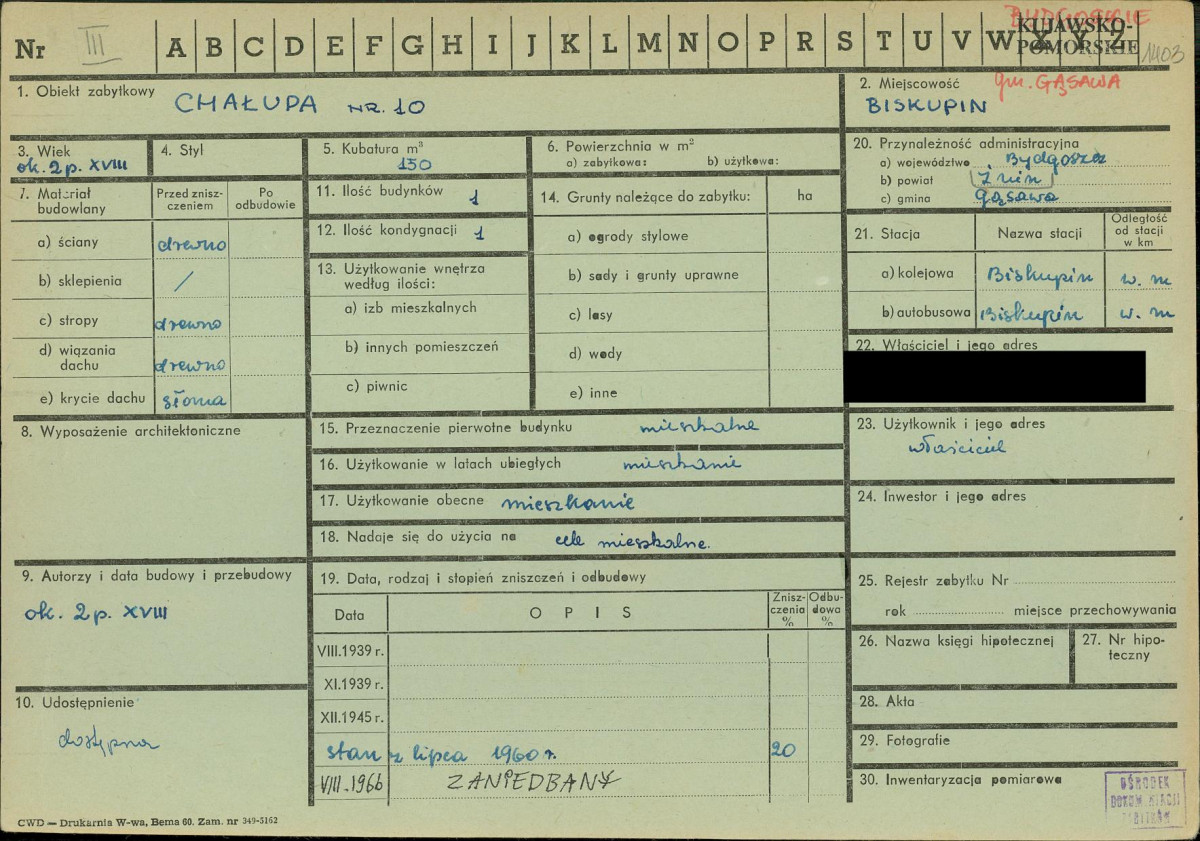 BYDGOSKIE
KUJAWSKO-
POMORSKIE
Nr III A B C D E F G H I J K L M N O P R S T U V W X Y Z 1403
1. Obiekt zabytkowy CHAŁUPA NR. 10
2. Miejscowość gm. GĄSAWA
BISKUPIN
3. Wiek
ok. 2 p. XVIII
4. Styl
5. Kubatura m³
150
6. Powierzchnia w m²
a) zabytkowa: b) użytkowa:
20. Przynależność administracyjna
a) województwo Bydgoszcz
b) powiat Żnin
c) gmina Gąsawa
7. Materiał budowlany
Przed znisz-
czeniem
Po
odbudowie
a) ściany drewno
b) sklepienia /
c) stropy drewno
d) wiązania
dachu drewno
e) krycie dachu słoma
11. Ilość budynków 1
12. Ilość kondygnacji 1
13. Użytkowanie wnętrza
według ilości:
a) izb mieszkalnych
b) innych pomieszczeń
c) piwnic
14. Grunty należące do zabytku: ha
a) ogrody stylowe
b) sady i grunty uprawne
c) lasy
d) wody
e) inne
21. Stacja Nazwa stacji
Odległość
od stacji
w km
a) kolejowa Biskupin w. m
b) autobusowa Biskupin w. m
22. Właściciel i jego adres
8. Wyposażenie architektoniczne
15. Przeznaczenie pierwotne budynku mieszkalne
16. Użytkowanie w latach ubiegłych mieszkanie
17. Użytkowanie obecne mieszkanie
18. Nadaje się do użycia na cele mieszkalne.
23. Użytkownik i jego adres
właściciel
24. Inwestor i jego adres
9. Autorzy i data budowy i przebudowy
ok. 2 p. XVIII
10. Udostępnienie
dostępna
19. Data, rodzaj i stopień zniszczeń i odbudowy
Data OPIS
Znisz-
czenia
%
Odbu-
dowa
%
VIII.1939 r.
XI.1939 r.
XII.1945 r.
stan z lipca 1960 r. 20
VIII.1966 ZANIEDBANY
25. Rejestr zabytku Nr
rok miejsce przechowywania
26. Nazwa księgi hipotecznej
27. Nr hipo-
teczny
28. Akta
29. Fotografie
30. Inwentaryzacja pomiarowa
OŚRODEK
DOKUMENTACJI
ZABYTKÓW
CWD — Drukarnia W-wa, Bema 60. Zam. nr 349-5162